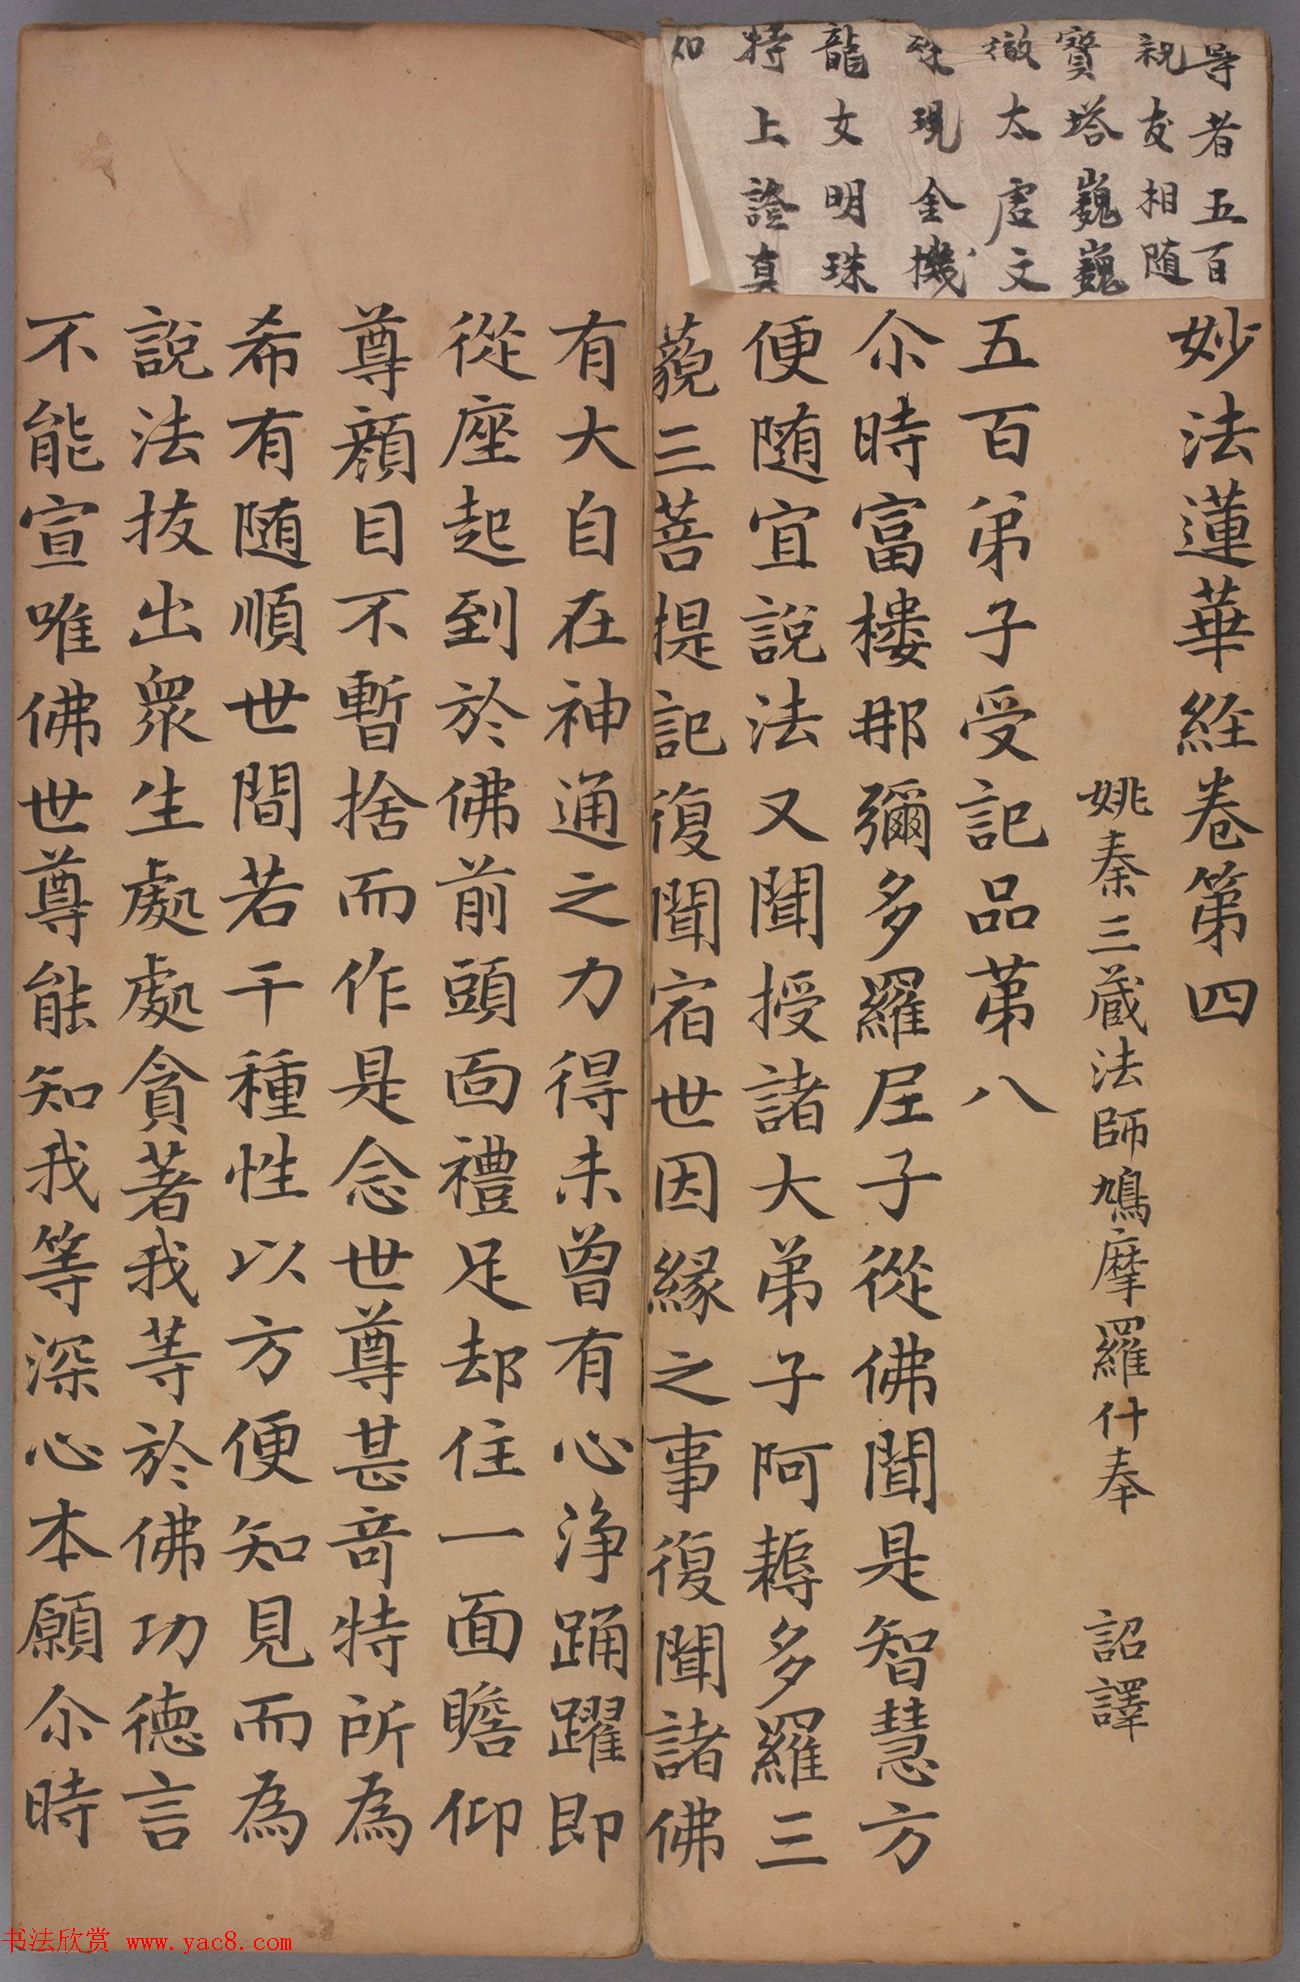 尊者五百
親友相随
寶塔巍巍
徹太虛文
殊現金機
龍女明珠
特上證真
如
妙法蓮華経卷第四
姚秦三藏法師鳩摩羅什奉 詔譯
五百弟子受記品苐八
尒時富樓那彌多羅尼子從佛聞是智慧方
便随宜說法又聞授諸大弟子阿耨多羅三
藐三菩提記復聞宿世因緣之事復聞諸佛
有大自在神通之力得未曾有心淨踊躍即
從座起到於佛前頭面禮足却住一面瞻仰
尊顔目不暫捨而作是念世尊甚奇特所為
希有随順世間若干種性以方便知見而為
說法拔出衆生處處貪著我等於佛功德言
不能宣唯佛世尊能知我等深心本願尒時
书法欣赏 www.yac8.com